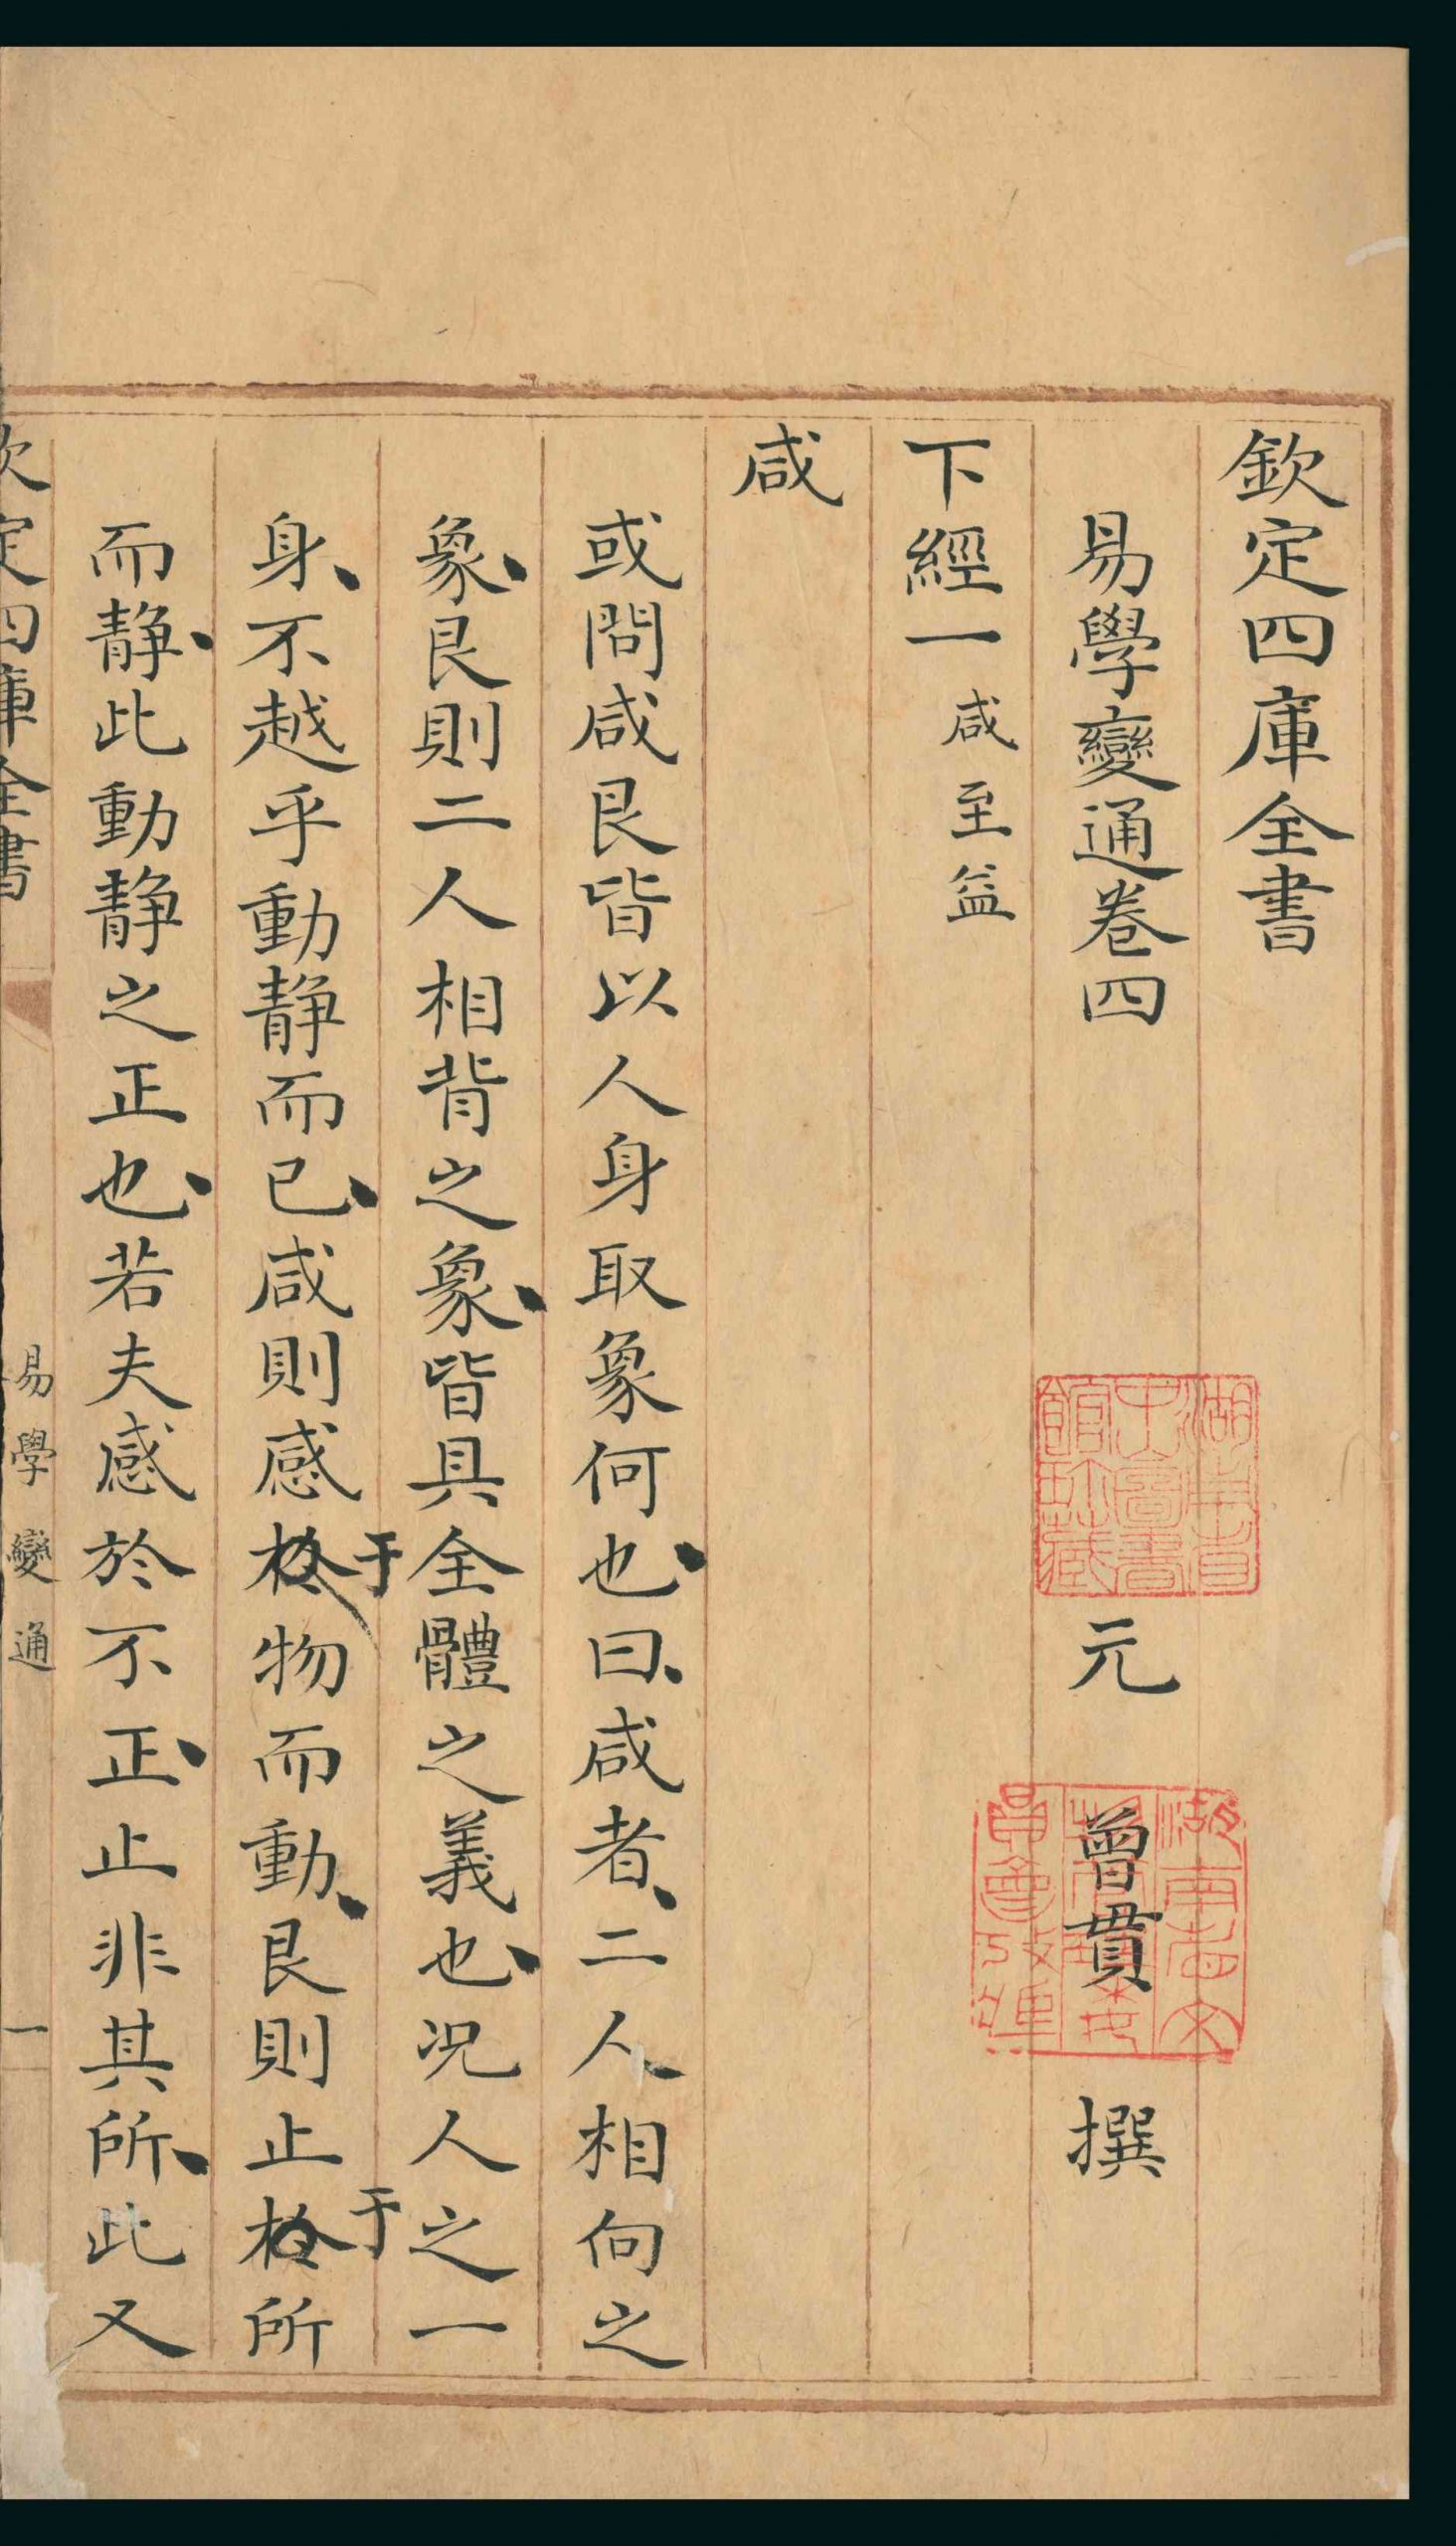 欽定四庫全書
易學變通卷四
元 曾貫 撰
下經一 咸至益
咸
或問咸艮皆以人身取象何也、曰、咸者、二人相向之
象、艮則二人相背之象、皆具全體之義也、况人之一
身、不越乎動静而已、咸則感於于物而動、艮則止於于所
而静、此動静之正也、若夫感於不正、止非其所、此又
欽定四庫全書
易學變通
一
湖南省
中山圖書
館珍藏
湖南省文